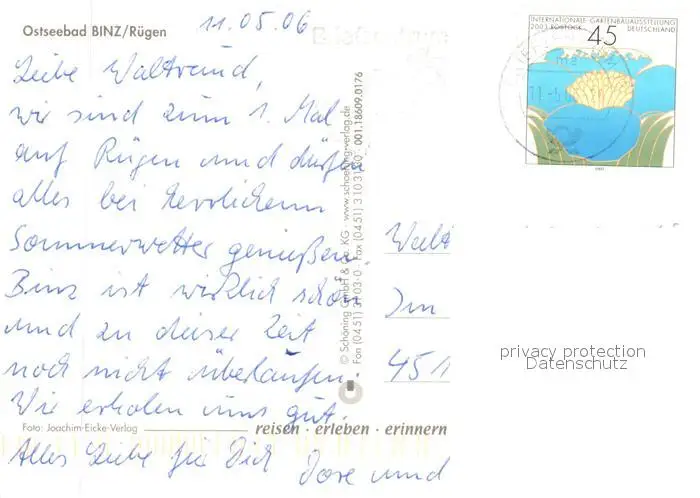 Ostseebad BINZ/Rügen
11.05.06
INTERNATIONALE GARTENBAUAUSSTELLUNG
2003 ROSTOCK DEUTSCHLAND
45
Liebe Waltraud,
wir sind zum 1. Mal
auf Rügen und dürfen
alles bei herrlichem
Sommerwetter genießen.
Binz ist wirklich schön
und zu dieser Zeit
noch nicht überlaufen.
Wir erholen uns gut.
Alles Liebe für Dich Dore und
Foto: Joachim-Eicke-Verlag
reisen · erleben · erinnern
© Schöning GmbH & Co. KG · www.schoening-verlag.de
Fon (0451) 3103-0 · Fax (0451) 310 31 00 001.18609.0176
Walt
Im
451
privacy protection
Datenschutz